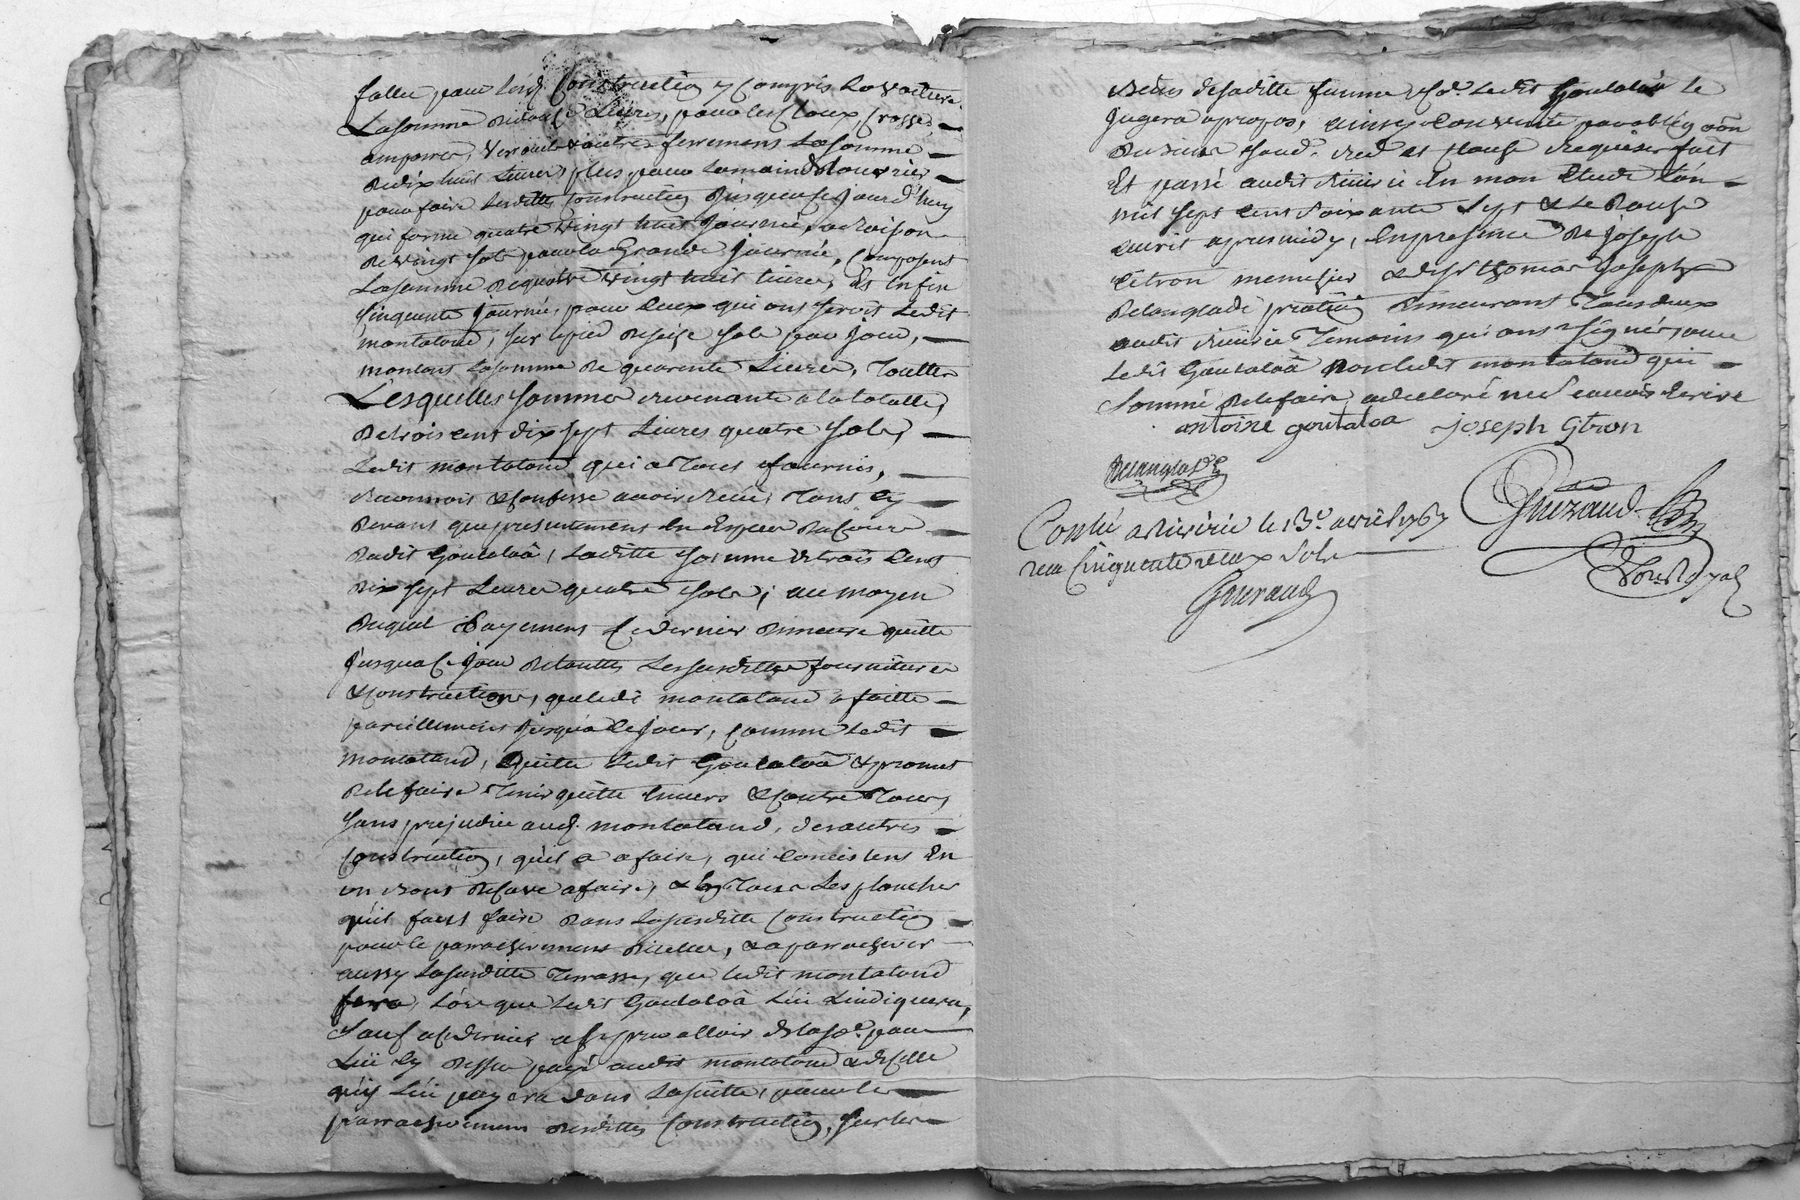 fallu pour lesd. Construction y Compris la voiture
La somme de douze Livres, pour les Cloux, Crosses,
amparres, verrouls & autres ferremens La somme
de dix huit Livres, plus pour la main d'ouvrier
pour faire lesdittes Construction Jusques ce jourd'huy
qui forme quatre vingt huit Journées, a raison
de vingt sols pour la Grande Journée, Composent
La somme de quatre vingt huit Livres, Et Enfin
Cinquante journées, pour Ceux qui ont servit Ledit
montaland, sur le pied de seize sols par jour,
montant La somme de quarante Livres, Touttes
Lesquelles sommes revenante a la totalle,
de trois cent dix sept Livres quatre sols,
Ledit montaland, qui a Tout fournis,
reconnois & Confesse avoir Reçu, Tant Cy
devant que presentement En Espece de Cours
dudit Goutaloâ, Laditte somme de trois Cent
dix sept Livres quatre sols, au moyen
duquel Payement Ce dernier demeure quitte
jusqua Ce jour de touttes Les susdittes fournitures
& Construction, que ledi montaland a faitte
pareillement jusqua Ce jour, Comme Ledit
montaland, Quitte Ledit Goutaloâ & promet
de le faire Tenir quitte Envers & Contre Tous,
sans prejudice aud. montaland, des autres
Construction, qu'il a a faire, qui Concistent En
un rond de Cave a faire, & En Tous Les plancher
qu'il faut faire dans La susditte Construction
pour le parrachevement d'icelle, & a parrachever
aussy La susditte Terrasse, que ledit montaland
fera, Lors que Ledit Goutaloâ Lui Lindiquera,
sauf a Ce dernier a se prevalloir de la so.e par
Lui Cy dessu payé audit montaland & de Celle
qu'il Lui payera dans La suitte, pour le
parrachevement desdittes Construction, sur les
Biens de saditte femme, Co.e Ledit Goutaloâ le
jugera apropos, ainsy Convenu
fait
Et passé audit Rivirie En mon Etude L'an
mil sept Cent soixante sept & Le Douze
avril apres midy, En presence de joseph
Citron menuisier & de sr thomas Joseph
Delanglade praticien demeurant Tous deux
audit Rivirie Temoins qui ont signés avec
Ledit Goutaloâ non Ledit montaland qui
sommé de le faire a declaré ne sçavoir Ecrire
antoine goutaloa joseph Citron
Delanglade
Guerand
Conlé a Rivirie le 13e avril 1767
reçu Cinquante deux sols
Gouraud
Not.re Royal